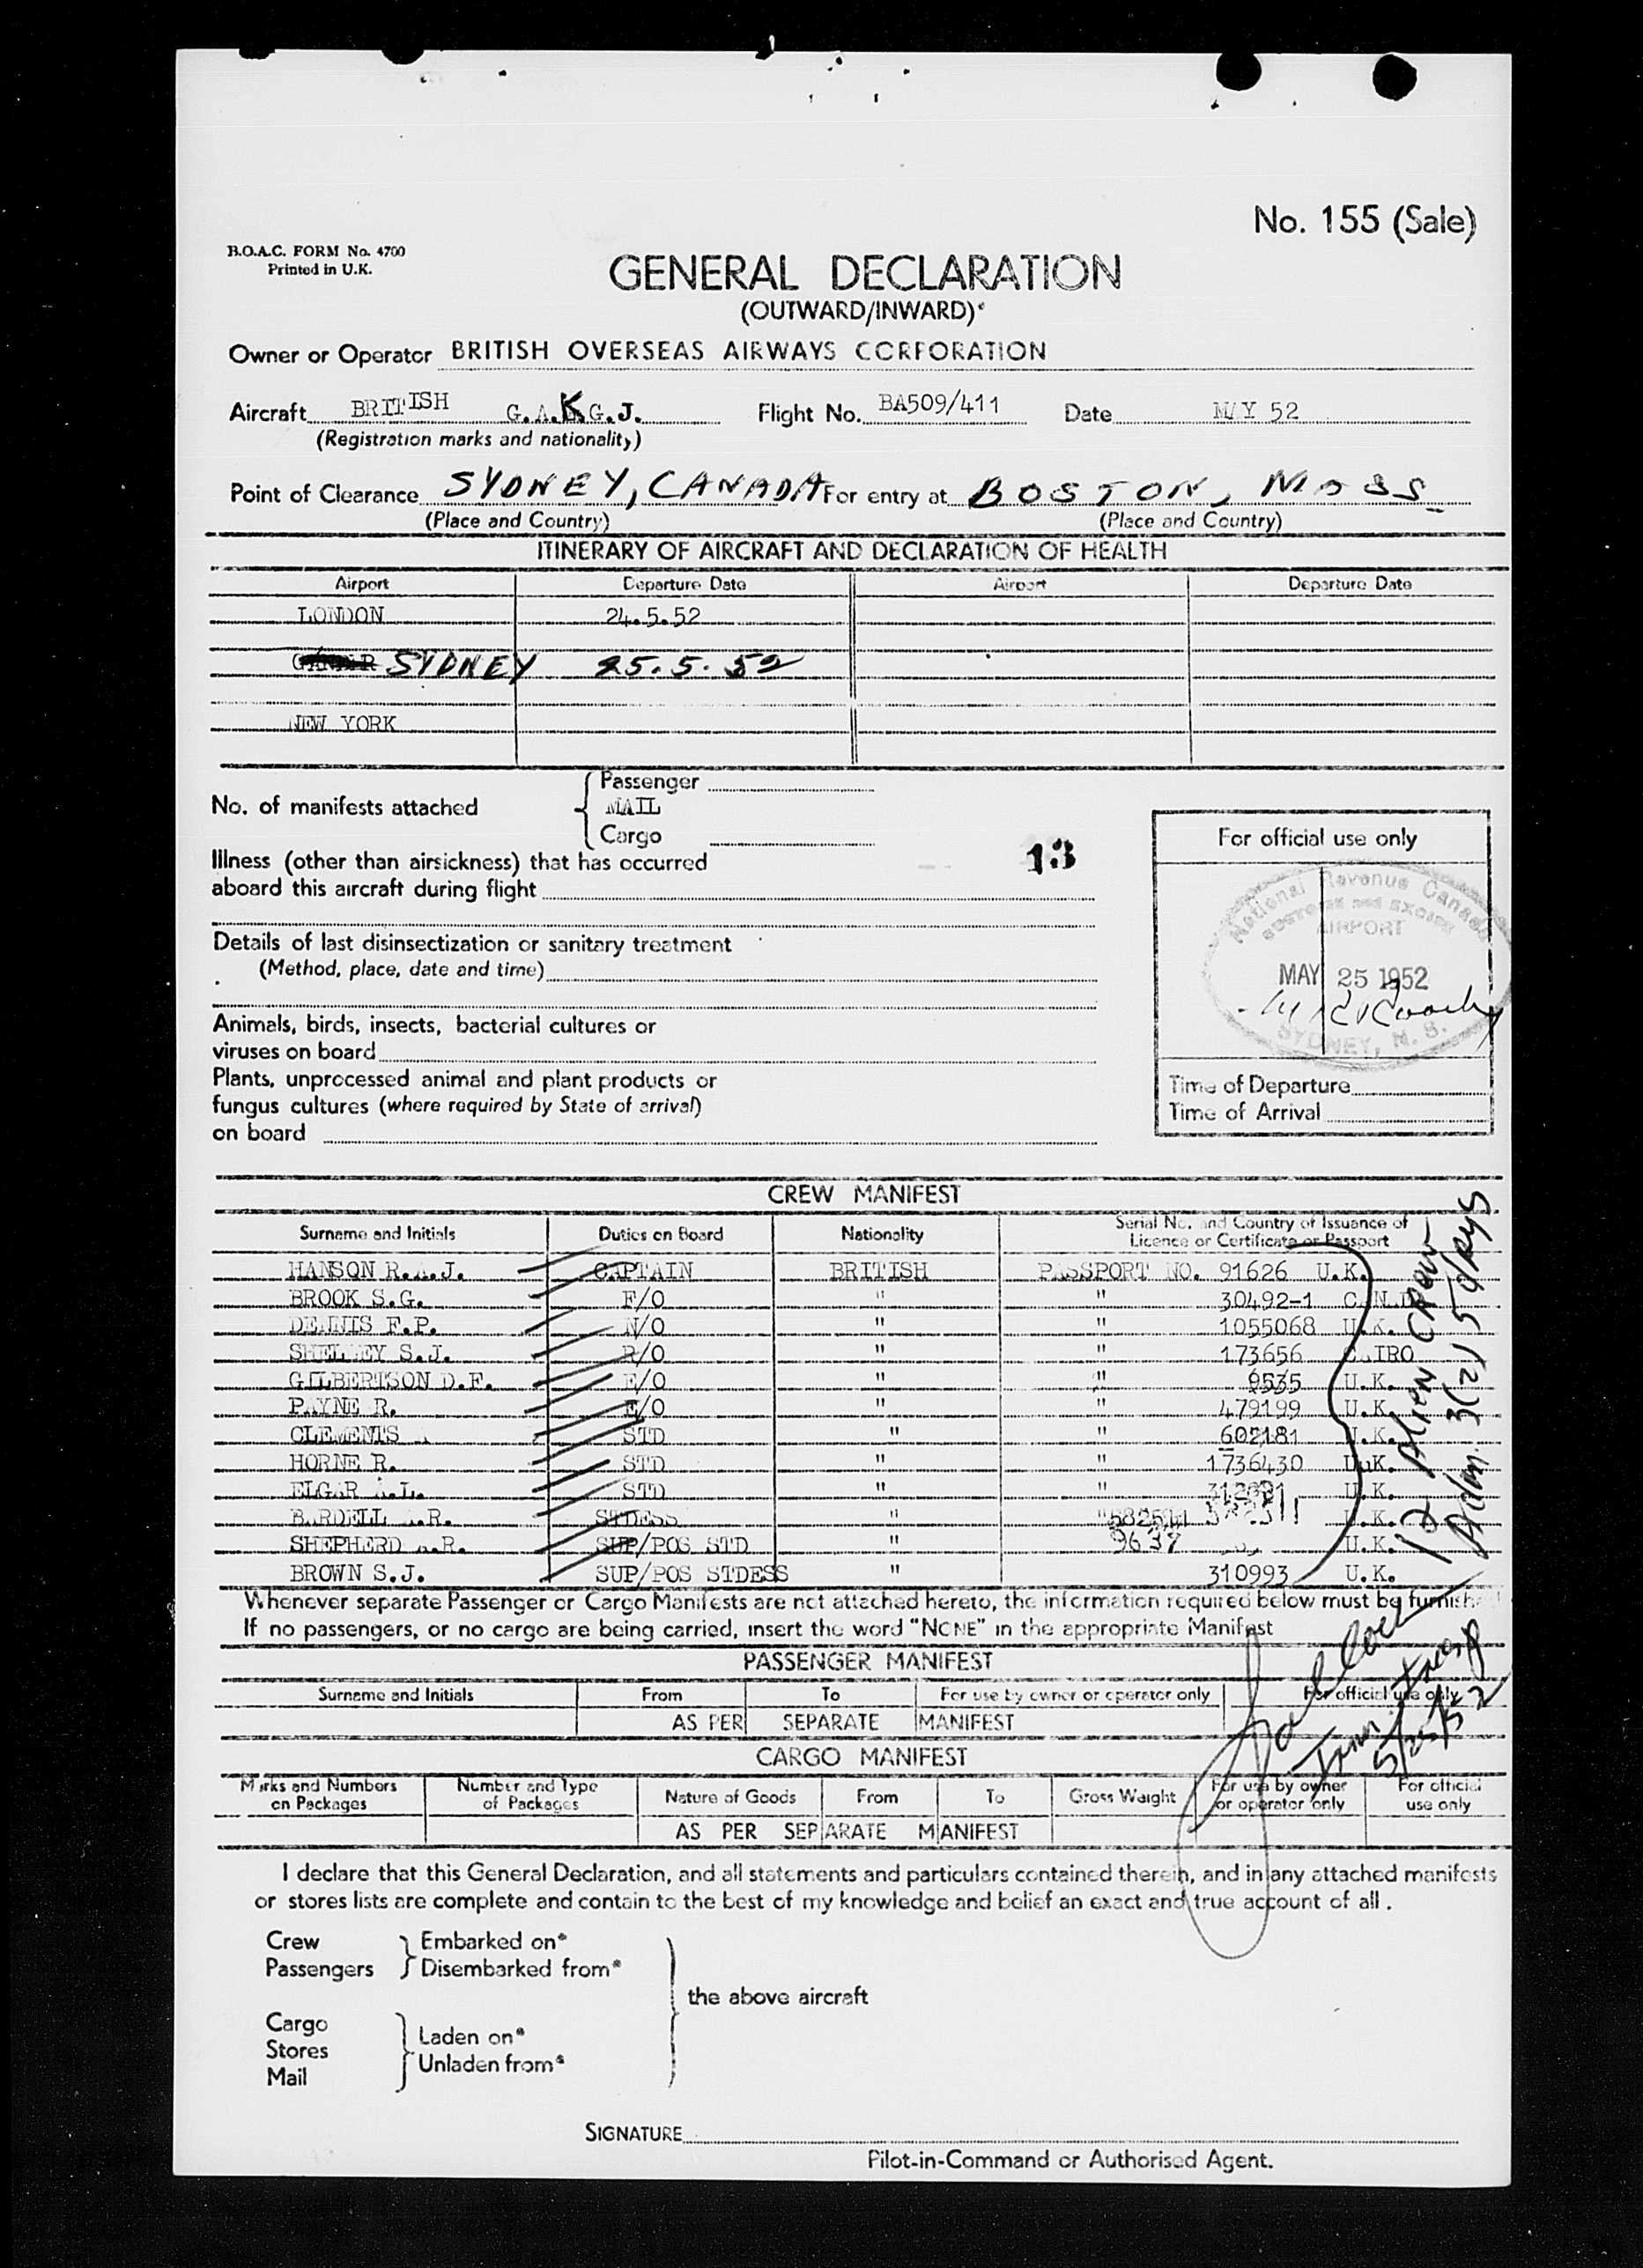 No. 155 (Sale)
B.O.A.C. FORM No. 4700
Printed in U.K.
GENERAL DECLARATION
(OUTWARD/INWARD)*
Owner or Operator BRITISH OVERSEAS AIRWAYS CORPORATION
Aircraft BRITISH G.A.K.G.J. Flight No. BA509/411 Date MAY 52
(Registration marks and nationality)
Point of Clearance SYDNEY, CANADA For entry at BOSTON, MASS
(Place and Country) (Place and Country)
ITINERARY OF AIRCRAFT AND DECLARATION OF HEALTH
Airport Departure Date Airport Departure Date
LONDON 24.5.52
SYDNEY 25.5.52
NEW YORK
Passenger
No. of manifests attached MAIL
Cargo
For official use only
13
Illness (other than airsickness) that has occurred
aboard this aircraft during flight
National Revenue Canada
CUSTOMS AND EXCISE
AIRPORT
MAY 25 1952
SYDNEY, N.S.
Details of last disinsectization or sanitary treatment
(Method, place, date and time)
Animals, birds, insects, bacterial cultures or
viruses on board
Plants, unprocessed animal and plant products or
fungus cultures (where required by State of arrival)
on board
Time of Departure
Time of Arrival
CREW MANIFEST
Surname and Initials Duties on Board Nationality Serial No. and Country of Issuance of
Licence or Certificate or Passport
HANSON R.A.J. CAPTAIN BRITISH PASSPORT NO. 91626 U.K.
BROOK S.G. F/O " " 30492-1 CAN.D
DENNIS F.P. N/O " " 1055068 U.K.
SHELLEY S.J. R/O " " 173656 CAIRO
GILBERTSON D.F. E/O " " 9535 U.K.
PAYNE R. E/O " " 479199 U.K.
CLEMENTS STD " " 602181 U.K.
HORNE R. STD " " 1736430 U.K.
ELGAR A.L. STD " " U.K.
BARDELL A.R. STDESS " " U.K.
SHEPHERD A.R. SUP/POS STD " 9637 U.K.
BROWN S.J. SUP/POS STDESS " 310993 U.K.
12 Alien Crew
Adm. 3(2) 5 days
Whenever separate Passenger or Cargo Manifests are not attached hereto, the information required below must be furnished
If no passengers, or no cargo are being carried, insert the word "NONE" in the appropriate Manifest
PASSENGER MANIFEST
Surname and Initials From To For use by owner or operator only For official use only
AS PER SEPARATE MANIFEST
Imm. Insp
5/25/52
CARGO MANIFEST
Marks and Numbers on Packages Number and Type of Packages Nature of Goods From To Gross Weight For use by owner or operator only For official use only
AS PER SEPARATE MANIFEST
I declare that this General Declaration, and all statements and particulars contained therein, and in any attached manifests
or stores lists are complete and contain to the best of my knowledge and belief an exact and true account of all.
Crew Embarked on*
Passengers Disembarked from*
the above aircraft
Cargo
Stores
Mail
Laden on*
Unladen from*
SIGNATURE
Pilot-in-Command or Authorised Agent.